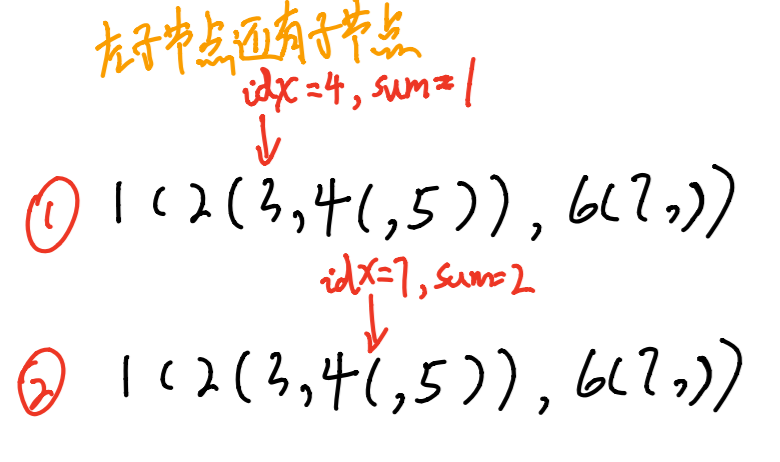 左子节点还有子节点
idx=4, sum=1
① 1(2(3,4(,5)),6(7,))
idx=7, sum=2
② 1(2(3,4(,5)),6(7,))